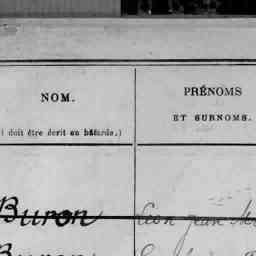 NOM.
doit être écrit en bâtarde.)
PRÉNOMS
ET SURNOMS.
Buron
Léon Jean
Buron